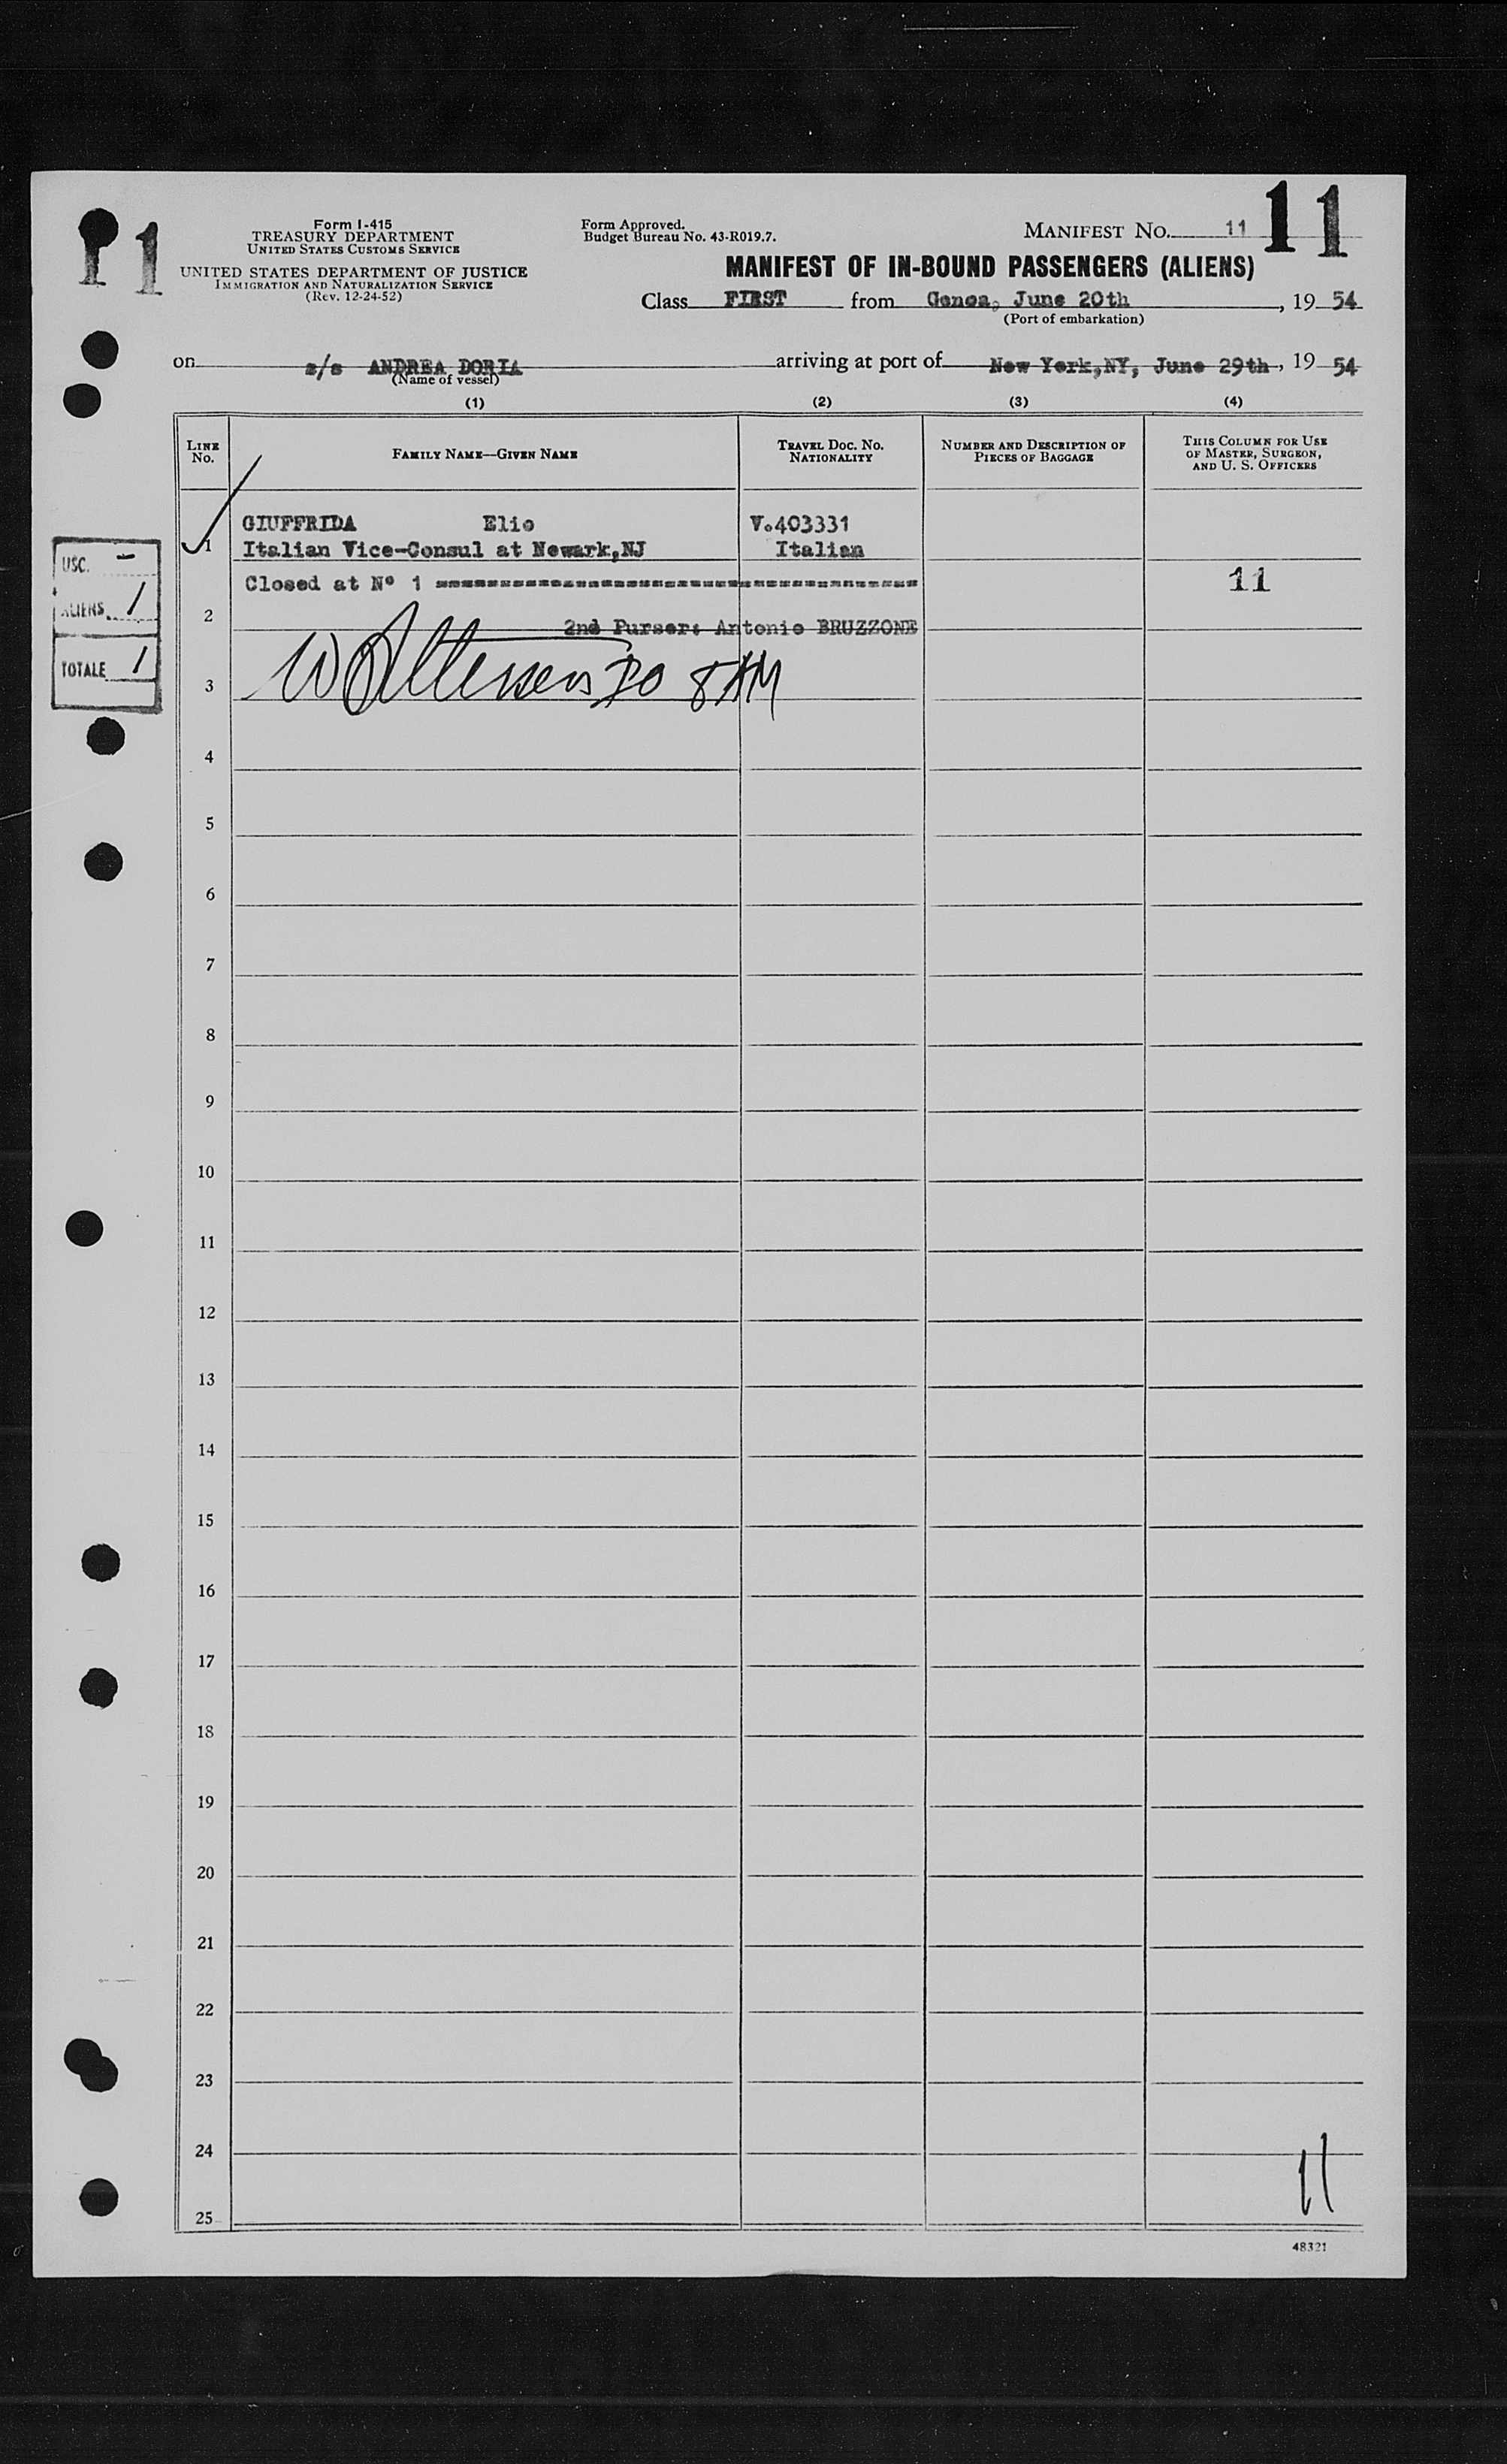 11
11
Form I-415
TREASURY DEPARTMENT
UNITED STATES CUSTOMS SERVICE
UNITED STATES DEPARTMENT OF JUSTICE
IMMIGRATION AND NATURALIZATION SERVICE
(Rev. 12-24-52)
Form Approved.
Budget Bureau No. 43-R019.7.
MANIFEST NO. 11
MANIFEST OF IN-BOUND PASSENGERS (ALIENS)
Class FIRST from Genoa, June 20th, 19 54
(Port of embarkation)
on s/s ANDREA DORIA arriving at port of New York,NY, June 29th, 19 54
(Name of vessel)
(1) (2) (3) (4)
LINE No. FAMILY NAME—GIVEN NAME TRAVEL DOC. NO. NATIONALITY NUMBER AND DESCRIPTION OF PIECES OF BAGGAGE THIS COLUMN FOR USE OF MASTER, SURGEON, AND U. S. OFFICERS
GIUFFRIDA Elio V.403331
1 Italian Vice-Consul at Newark,NJ Italian
USC. -
ALIENS 1
TOTALE 1
Closed at Nº 1 11
2
2nd Purser: Antonio BRUZZONE
3
4
5
6
7
8
9
10
11
12
13
14
15
16
17
18
19
20
21
22
23
24
11
25
48321